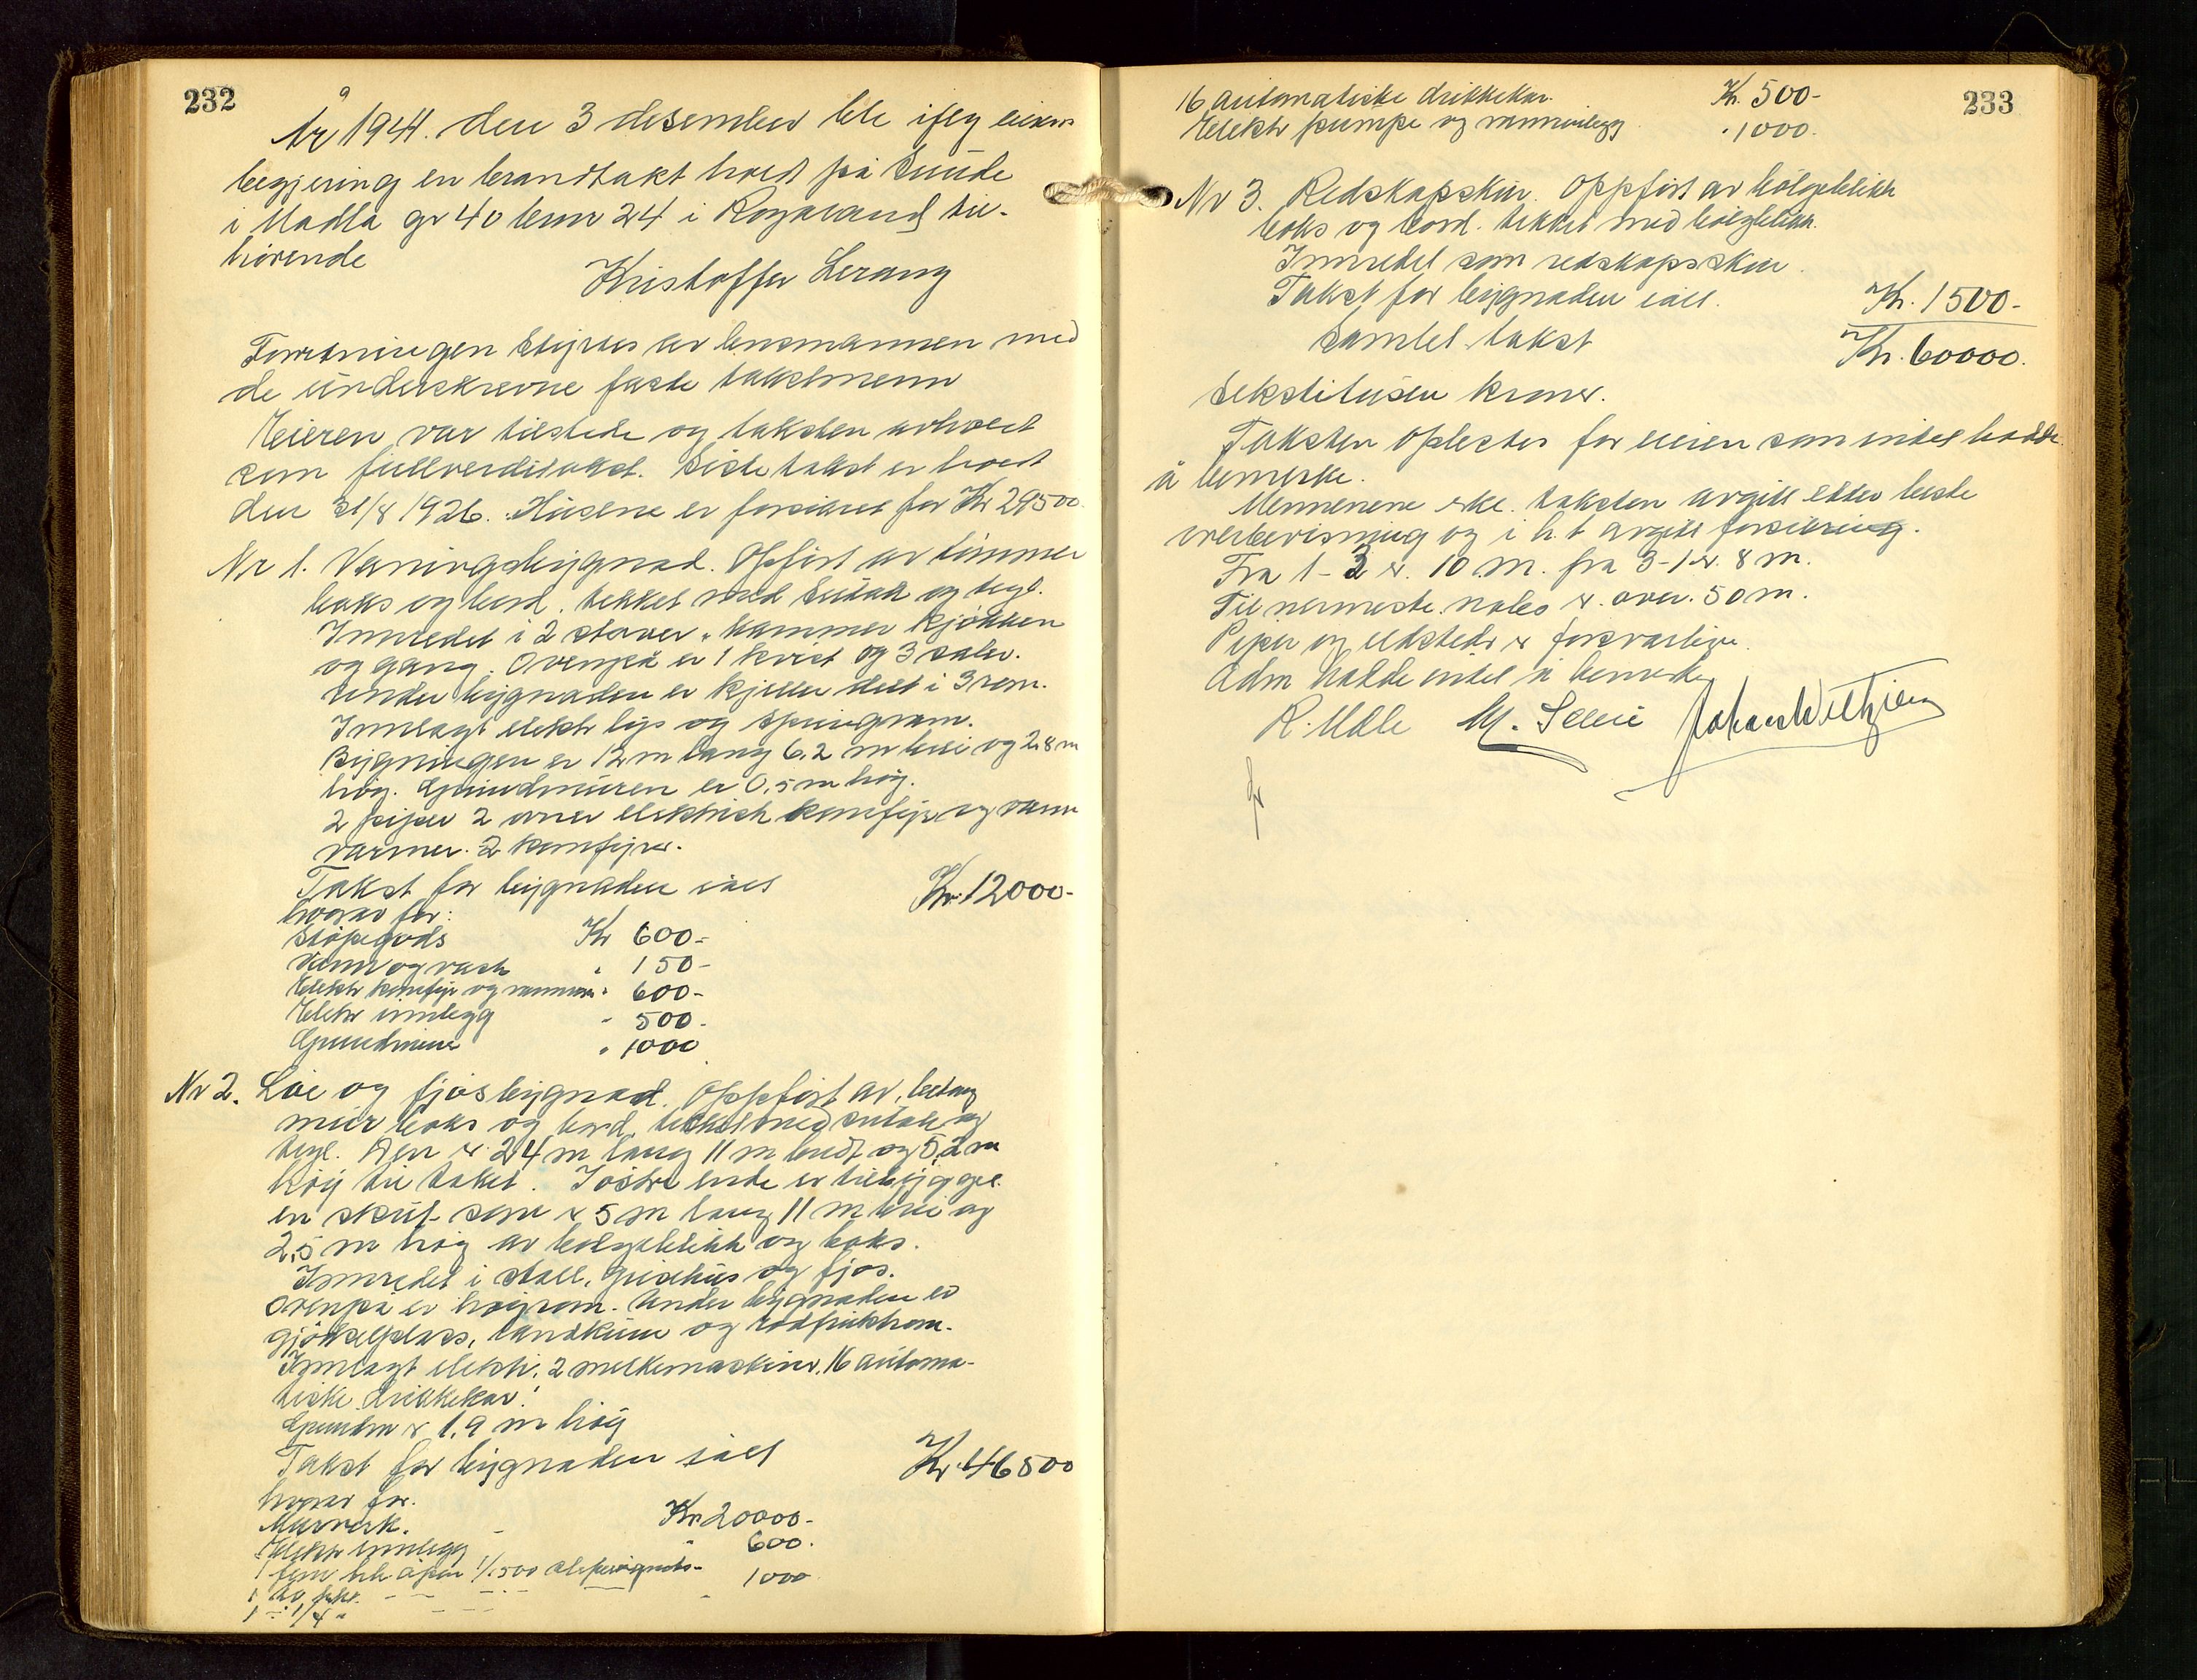 232
År 1941. den 3 desember ble iflg eierens
begjering en brandtakt holdt på Sunde
i Madla gr 40 brnr 24 i Rogaland til-
hørende
Kristoffer Lerang
Forretningen styrtes av lensmannen med
de underskrevne faste takstmenn
Eieren var tilstede og taksten avholdt
som fullverditakst. Siste takst er holdt
den 31/8 1926. Husene er forsikret for Kr 29500.
Nr 1. Våningsbygnad. Oppført av tømmer
boks og bord, tekket med sutak og tegl.
Innredet i 2 stover, kammer kjøkken
og gang. Ovenpå er 1 kvist og 3 saler.
Under bygnaden er kjeller delt i 3 rom.
Innlagt elektr lys og springvann.
Bygningen er 12 m lang 6,2 m brei og 2,8 m
høg. Grundmuren er 0,5 m høg.
2 piper 2 ovner elektrisk komfyr og vann
varmer. 2 komfyrer.
Takst for bygnaden ialt Kr. 12000-
hvorav for:
Støpegods Kr 600-
Vann og vask " 150-
Elektr komfyr og vannvarm. " 600-
Elektr innlegg " 500-
Grundmur " 1000
Nr 2. Løe og fjøsbygnad. Oppført av, betong
mur boks og bord, tekket med sutak og
tegl. Den er 24 m lang 11 m bredt og 5,2 m
høg til taket. I østre ende er tilbygget
en skut som er 5 m lang 11 m brei og
2,5 m høg av bølgeblikk og boks.
Innredet i stall, grisehus og fjøs.
Ovenpå er høyrom. Under bygnaden er
gjødselplass, landkum og rodfruktrom.
Innlagt elektr. 2 melkemaskiner, 16 automa-
tiske drikkekar.
Grundm er 1,9 m høg
Takst for bygnaden ialt Kr. 46500
hvorav for.
Murverk. - Kr 20000-
Elektr innlegg " 600.
1 fem hk åpen 1/1500 sleperingmoto- 1000
1 to hk. - - - - -
1 -:- 1/4 " - - -
233
16 automatiske drikkekar. Kr. 500-
Elektr pumpe og vanninlegg " 1000.
Nr 3. Redskapskur. Oppført av bølgeblikk
boks og bord. tekket med bølgblikk.
Innredet som redskapsskur.
Takst for bygnaden ialt. Kr. 1500-
Samlet takst Kr. 60000.
Sekstitusen kroner.
Taksten oplestes for eieren som intet hadde
å bemerke.
Mennenene erkl. taksten avgitt etter beste
overbevisning og i h. t avgitt forsikring.
Fra 1-2 er 10 m. fra 3-1 er 8 m.
Til nermeste nabo er over 50 m.
Piper og ildsteder er forsvarlige.
Adm hadde intet å bemerke
R. Udle M. Selle